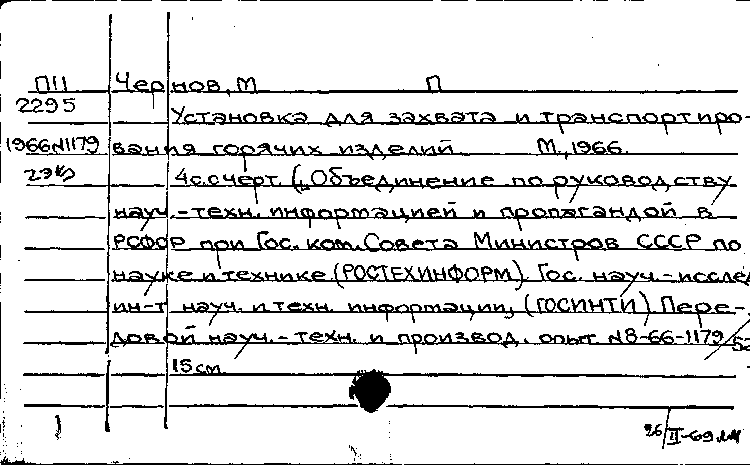 П11 Чернов, М П
2295 Установка для захвата и транспортиро-
1966N1179 вания горячих изделий. М., 1966.
4 с. с черт. („Объединение по руководству
науч.-техн. информацией и пропагандой в
РСФСР при Гос. ком. Совета Министров СССР по
науке и технике (РОСТЕХИНФОРМ). Гос. науч.-исслед
ин-т науч. и техн. информации„ (ГОСИНТИ) Пере-
довой науч.-техн. и производ. опыт N8-66-1179/52
15 см.
26/II-69